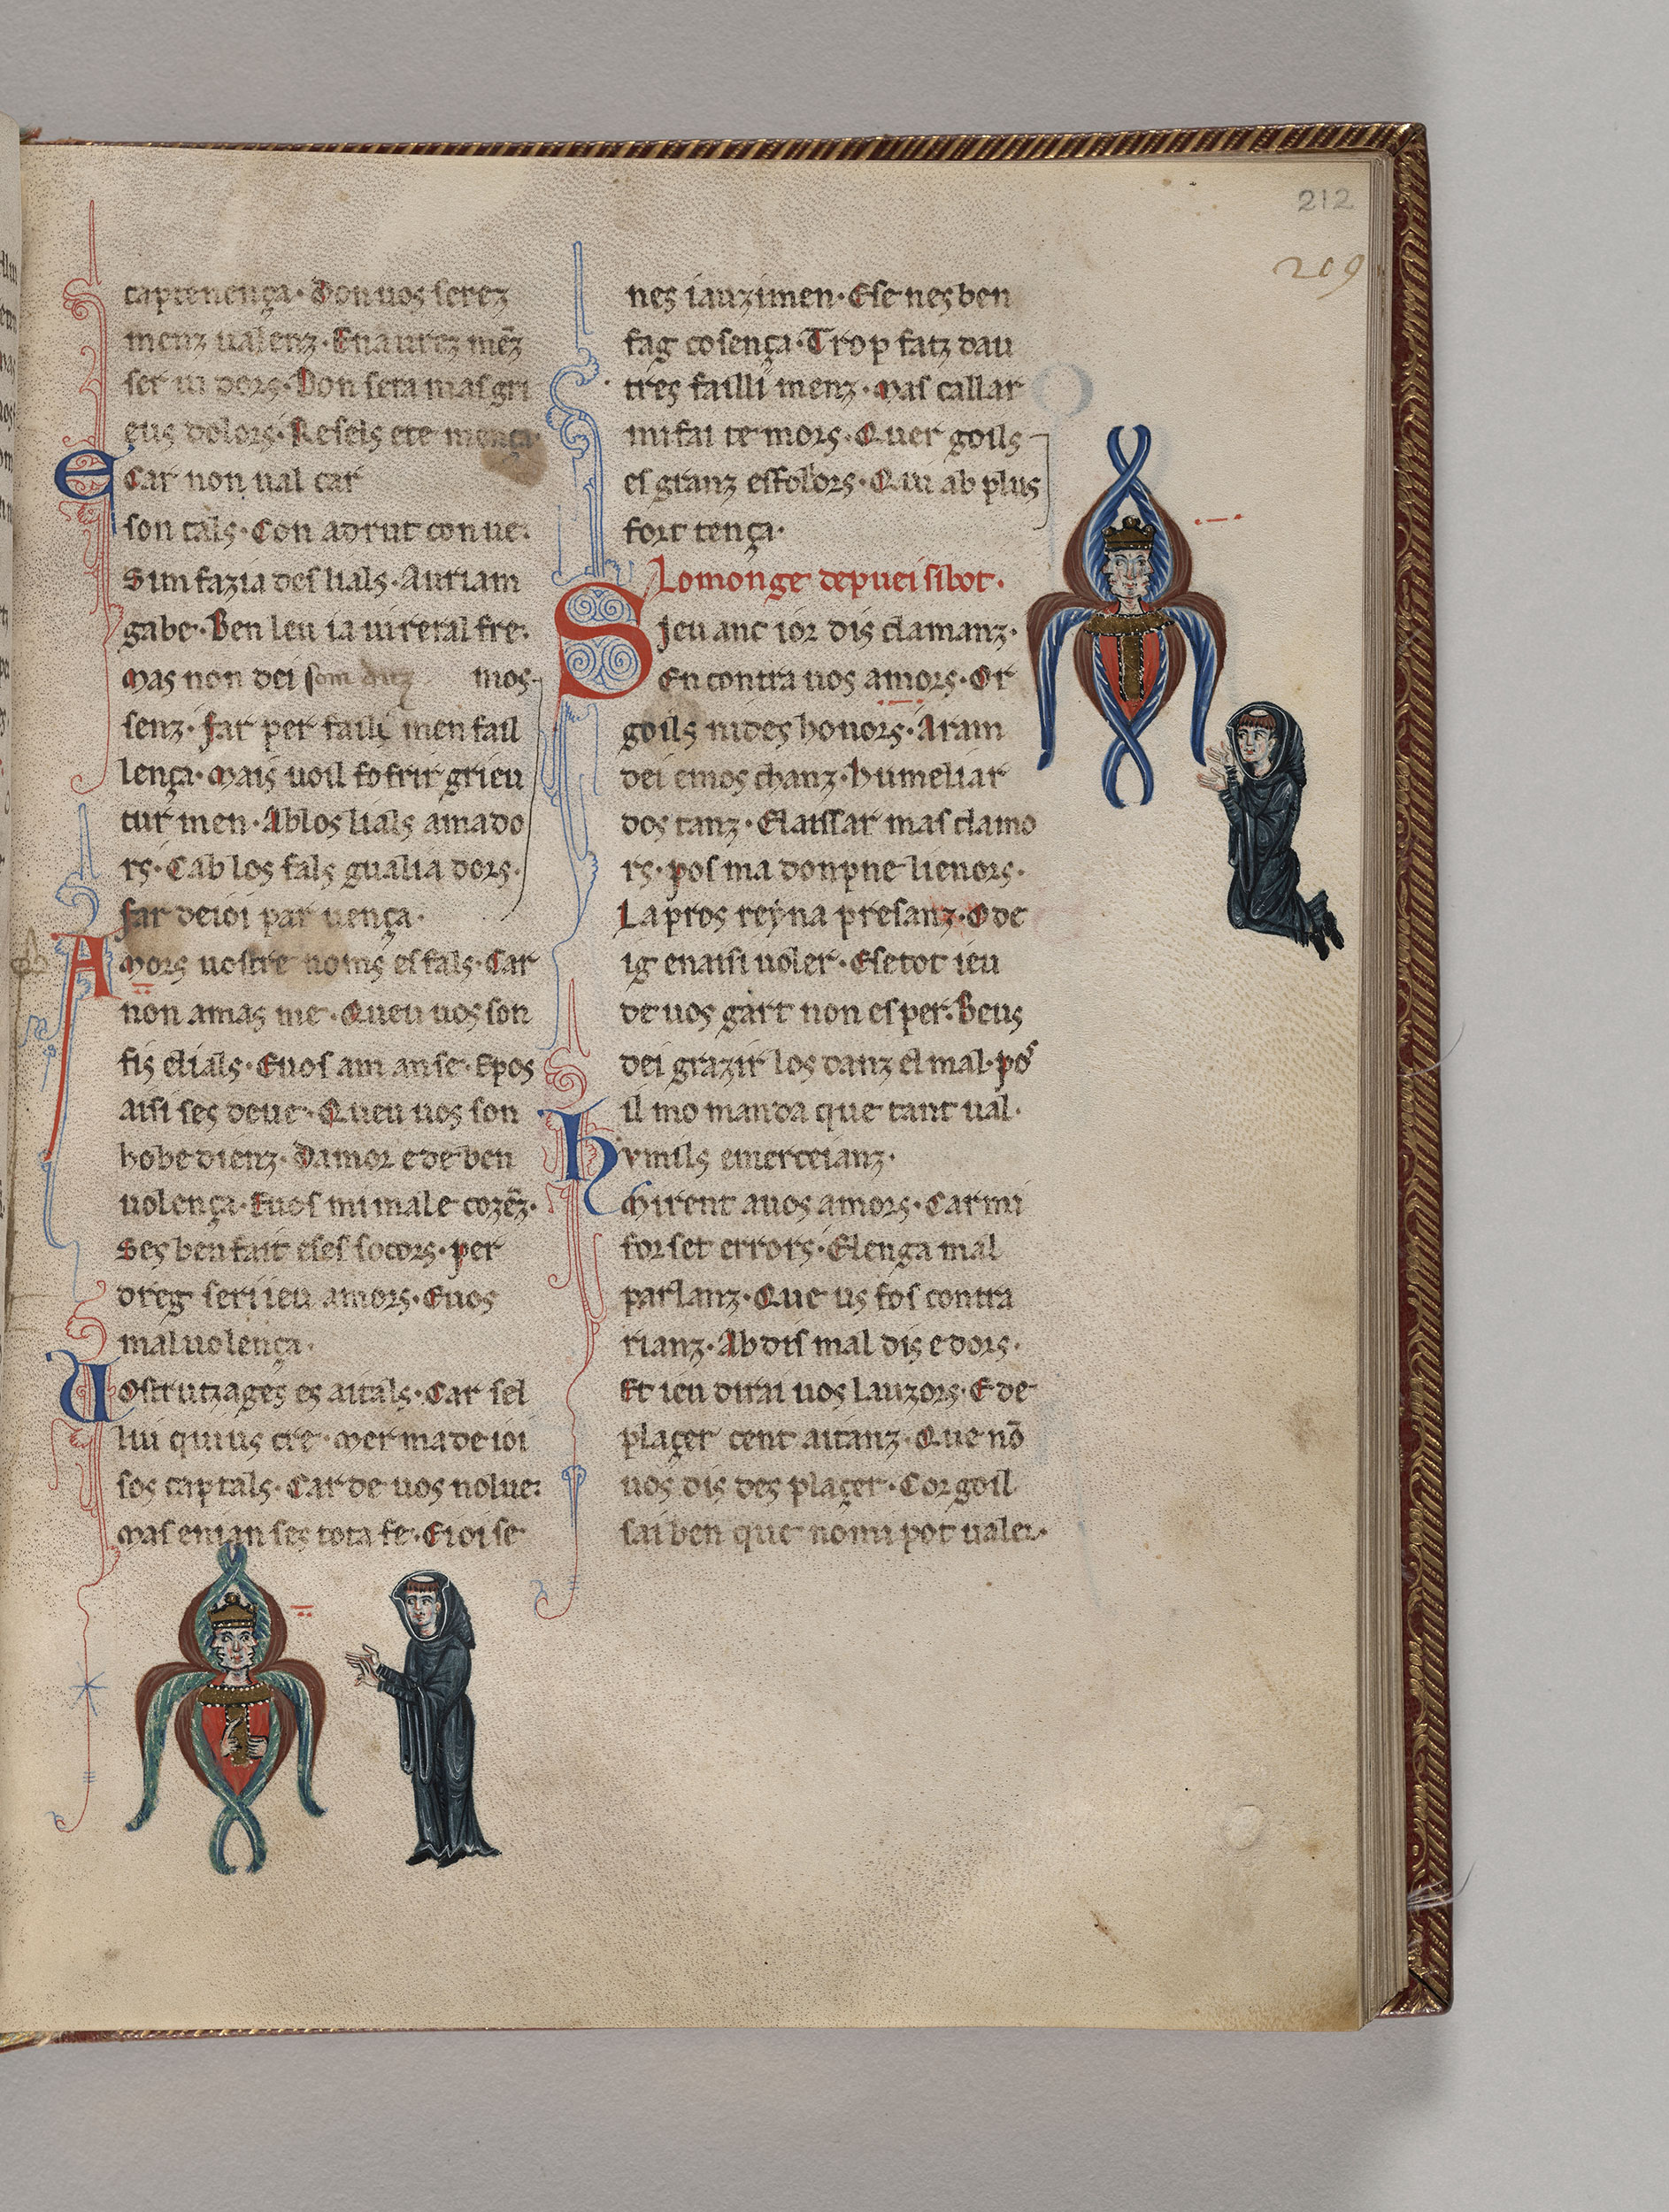 212
209
captenença. Don uos serez
menz ualenz. Enaurez mẽz
ser ui dors. Don sera mas gri
eus dolors. Resels ere mença.
E Car non ual car
son tals. Con adrut conue.
Sim fazia des lials. Auriam
gabe. Ben leu ia uireral fre.
Mas non dei som ditz mos
senz. Far per failli men fail
lença. Mais uoil sofrir grieu
tur men. Ablos lials amado
rs. Cab los fals gualia dors.
far deioi par uença.
AMors uostre noms es fals. Car
non amas me. Queu uos son
fis elials. Euos am anse. Epos
aisi ses deue. Queu uos son
hobe dienz. Damor ede ben
uolença. Euos mi male cozẽz.
Ses ben fait eses socors. per
dreg seri ieu amors. Euos
mal uolença.
UOstr utzages es aitals. Car sel
lui quius cre. Mer ma de ioi
sos captals. Car de uos nolue.
Mas enian ses tota fe. E ioi se
nes iauzimen. Ese nes ben
fag cosença. Trop fatz dau
tres failli menz. Mas callar
mi fai te mors. Quer goils
es granz esfolors. Qui ab plus
fort tença.
Lo monge de puei sibot.
Sieu anc ior dis clamanz.
En contra uos amors. Or
goils nides honors. Aram
dei e mos chanz. humeliar
dos tanz. Elaissar mas clamo
rs. pos ma donpne lienors.
La pros reyna presanz. O de
ig enaisi uoler. Ese tot ieu
de uos gart non esper. Beus
dei grazir los danz el mal. pos
il mo manda que tant ual.
hvmils emerceianz.
Mirent auos amors. Car mi
forset errors. Elenga mal
parlanz. Que us fos contra
rianz. Ab dis mal dis e dors.
Et ieu dirai uos lauzors. E de
plaçer cent aitanz. Que nõ
uos dis des plaçer. Cor goil
sai ben que nomi pot ualer.